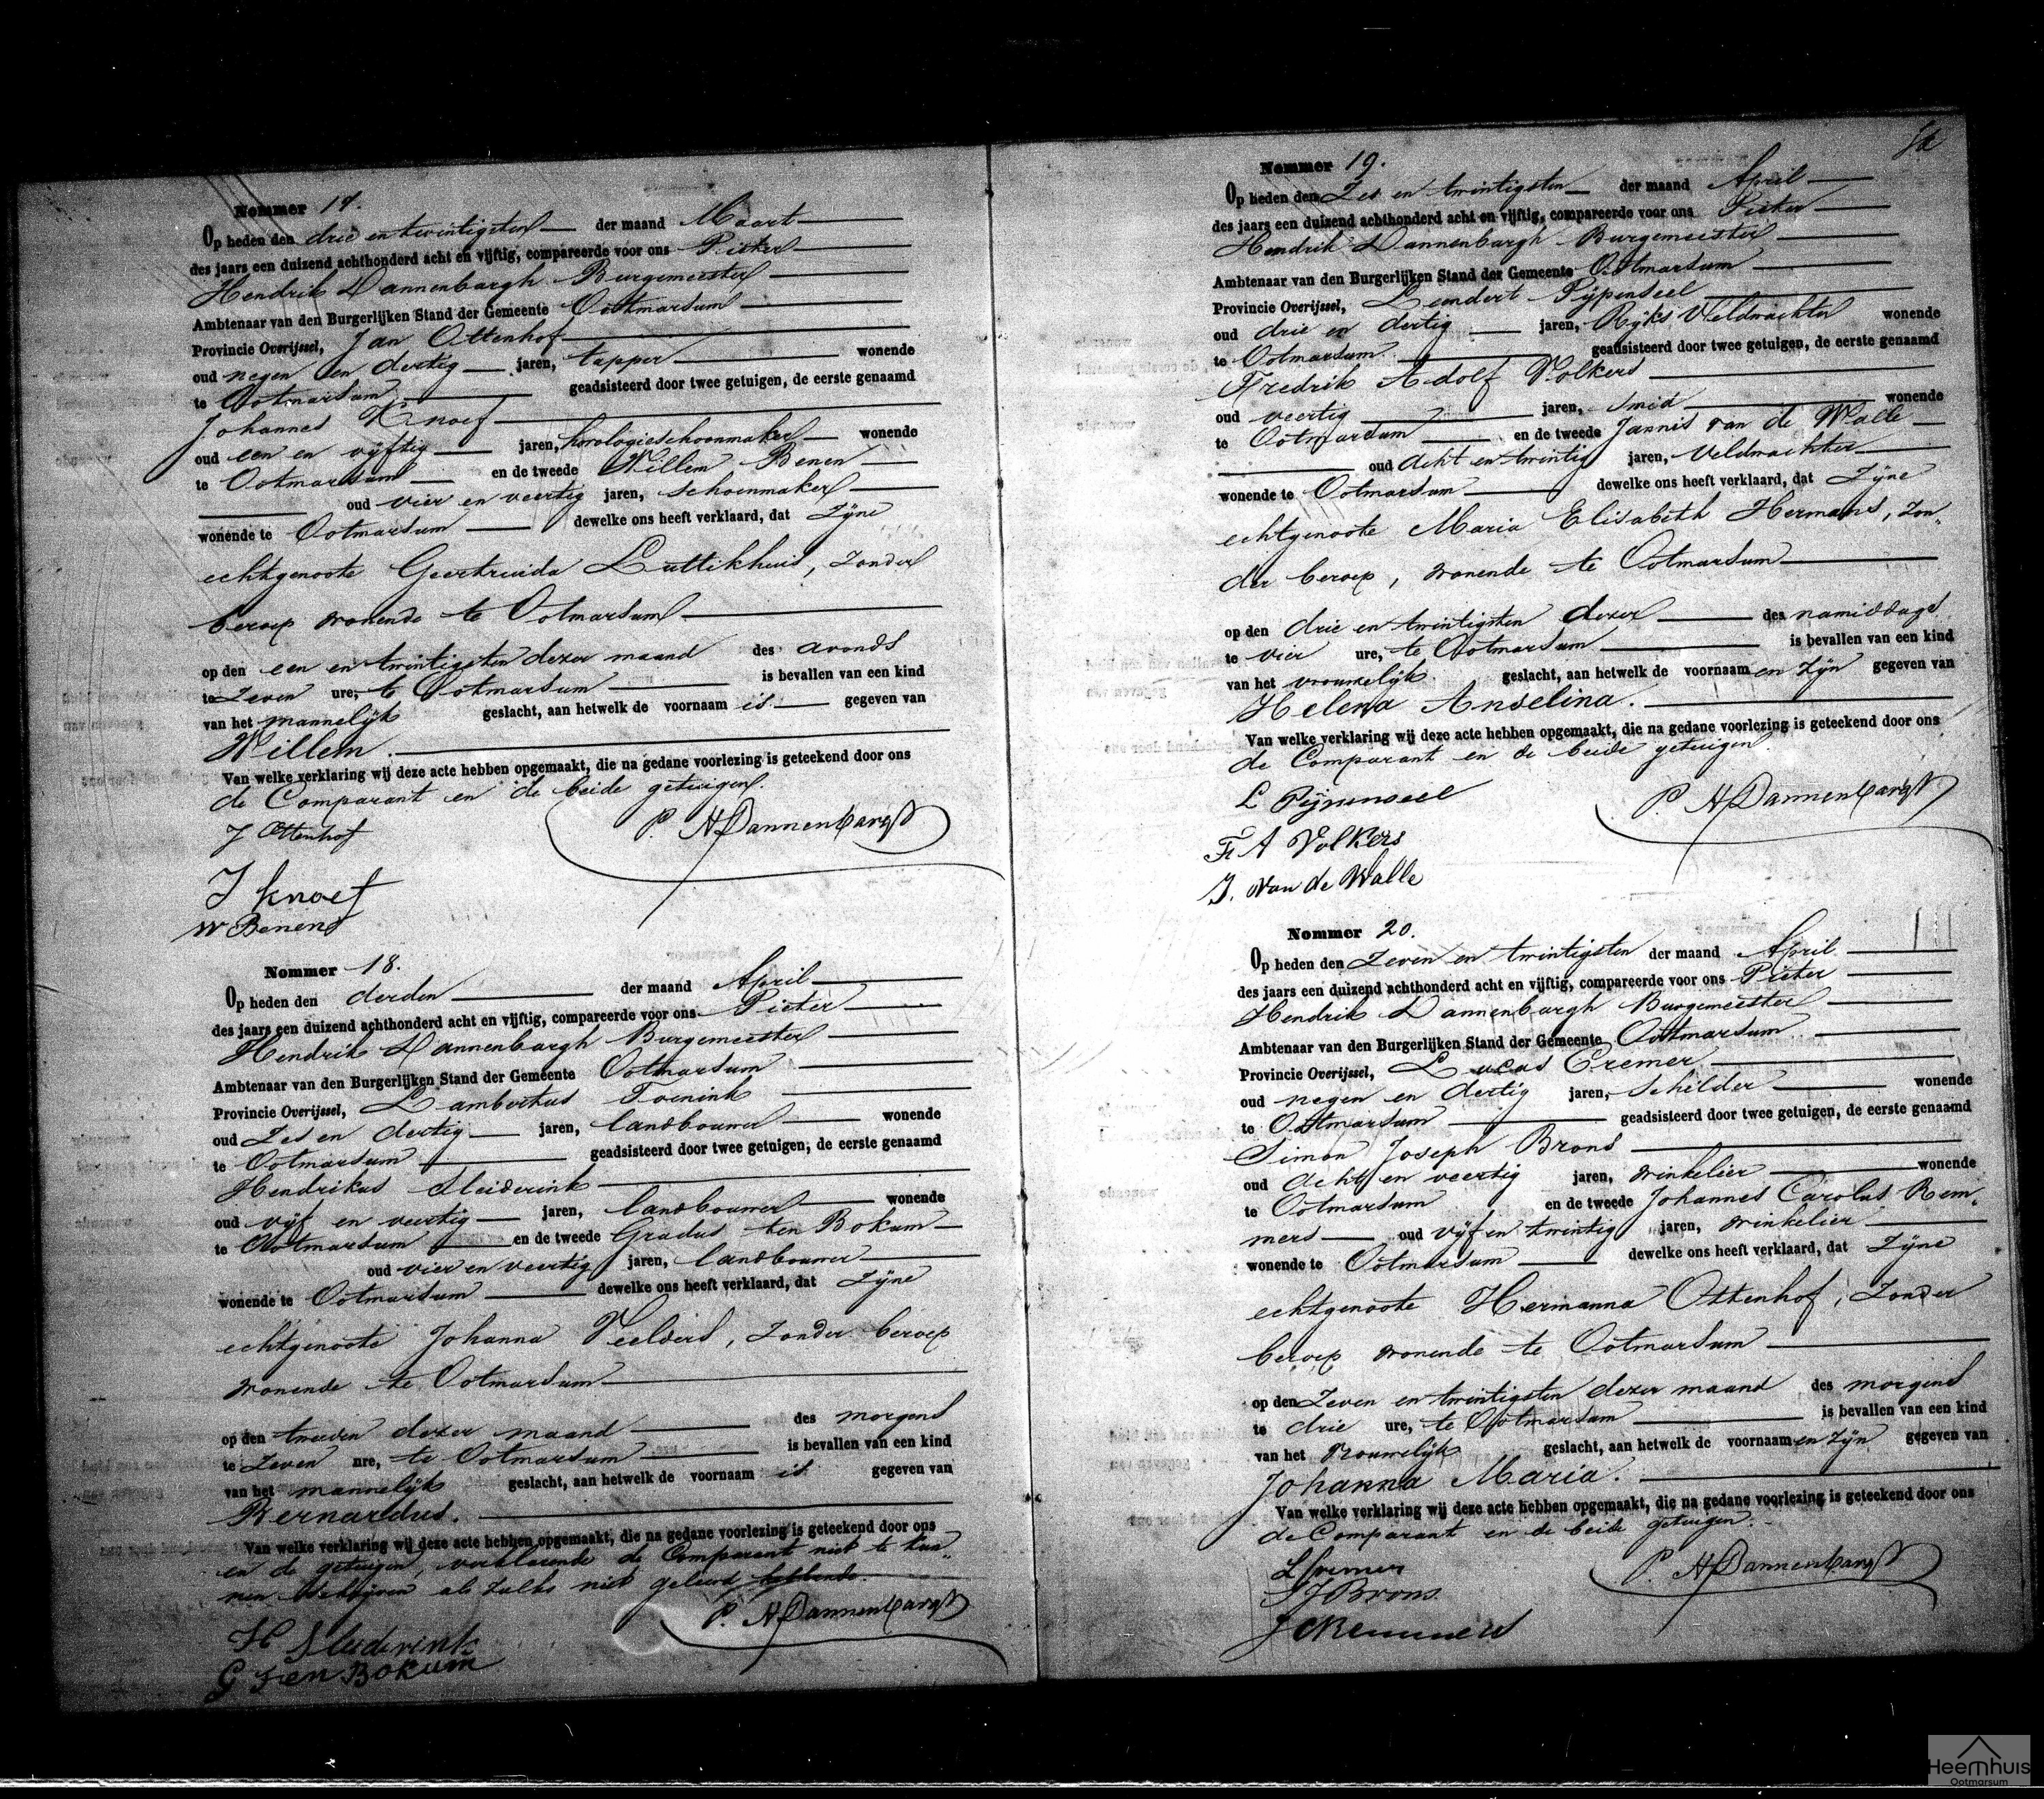 Nommer 17.
Op heden den drie en twintigsten der maand Maart
des jaars een duizend achthonderd acht en vijftig, compareerde voor ons Pieter
Hendrik Dannenbargh Burgemeester
Ambtenaar van den Burgerlijken Stand der Gemeente Ootmarsum
Provincie Overijssel, Jan Ottenhof
oud negen en dertig jaren, tapper wonende
te Ootmarsum geadsisteerd door twee getuigen, de eerste genaamd
Johannes Knoef
oud een en vijftig jaren, horologieschoonmaker wonende
te Ootmarsum en de tweede Willem Benen
oud vier en veertig jaren, schoenmaker
wonende te Ootmarsum dewelke ons heeft verklaard, dat Zijne
echtgenoote Geertruida Luttikhuis, zonder
beroep wonende te Ootmarsum
op den een en twintigsten dezer maand des avonds
te Zeven ure, te Ootmarsum is bevallen van een kind
van het mannelijk geslacht, aan hetwelk de voornaam is gegeven van
Willem.
Van welke verklaring wij deze acte hebben opgemaakt, die na gedane voorlezing is geteekend door ons
de Comparant en de beide getuigen.
J Ottenhof P. H Dannenbargh
J knoef
W Benen
Nommer 18.
Op heden den derden der maand April
des jaars een duizend achthonderd acht en vijftig, compareerde voor ons Pieter
Hendrik Dannenbargh Burgemeester
Ambtenaar van den Burgerlijken Stand der Gemeente Ootmarsum
Provincie Overijssel, Lambertus Toenink
oud Zes en dertig jaren, landbouwer wonende
te Ootmarsum geadsisteerd door twee getuigen, de eerste genaamd
Hendrikus Sleiderink
oud vijf en veertig jaren, landbouwer wonende
te Ootmarsum en de tweede Gradus ten Bokum
oud vier en veertig jaren, landbouwer
wonende te Ootmarsum dewelke ons heeft verklaard, dat Zijne
echtgenoote Johanna Veelders, zonder beroep
wonende te Ootmarsum
op den tweeden dezer maand des morgens
te Zeven ure, te Ootmarsum is bevallen van een kind
van het mannelijk geslacht, aan hetwelk de voornaam is gegeven van
Bernardus.
Van welke verklaring wij deze acte hebben opgemaakt, die na gedane voorlezing is geteekend door ons
en de getuigen, verklarende de Comparant niet te kun„
nen schrijven als zulks niet geleerd hebbende.
P. H Dannenbargh
H Sleiderink
G Ten Bokum
Nommer 19.
Op heden den Zes en twintigsten der maand April
des jaars een duizend achthonderd acht en vijftig, compareerde voor ons Pieter
Hendrik Dannenbargh Burgemeester
Ambtenaar van den Burgerlijken Stand der Gemeente Ootmarsum
Provincie Overijssel, Leendert Pijpenseel
oud drie en dertig jaren, Rijks Veldwachter wonende
te Ootmarsum geadsisteerd door twee getuigen, de eerste genaamd
Fredrik Adolf Volkers
oud veertig jaren, Smid wonende
te Ootmarsum en de tweede Jannis van de Walle
oud acht en twintig jaren, Veldwachter
wonende te Ootmarsum dewelke ons heeft verklaard, dat Zijne
echtgenoote Maria Elisabeth Hermans, zon„
der beroep, wonende te Ootmarsum
op den drie en twintigsten dezer des namiddags
te vier ure, te Ootmarsum is bevallen van een kind
van het vrouwelijk geslacht, aan hetwelk de voornaam en zijn gegeven van
Helena Anselina.
Van welke verklaring wij deze acte hebben opgemaakt, die na gedane voorlezing is geteekend door ons
de Comparant en de beide getuigen.
L Pijpenseel P. H Dannenbargh
Fr A Volkers
J. van de Walle
Nommer 20.
Op heden den Zeven en twintigsten der maand April
des jaars een duizend achthonderd acht en vijftig, compareerde voor ons Pieter
Hendrik Dannenbargh Burgemeester
Ambtenaar van den Burgerlijken Stand der Gemeente Ootmarsum
Provincie Overijssel, Lucas Cremer
oud negen en dertig jaren, Schilder wonende
te Ootmarsum geadsisteerd door twee getuigen, de eerste genaamd
Simon Joseph Brons
oud acht en veertig jaren, winkelier wonende
te Ootmarsum en de tweede Johannes Carolus Rem„
mers oud vijf en twintig jaren, winkelier
wonende te Ootmarsum dewelke ons heeft verklaard, dat Zijne
echtgenoote Hermanna Ottenhof, zonder
beroep wonende te Ootmarsum
op den Zeven en twintigsten dezer maand des morgens
te drie ure, te Ootmarsum is bevallen van een kind
van het Vrouwelijk geslacht, aan hetwelk de voornaam en zijn gegeven van
Johanna Maria.
Van welke verklaring wij deze acte hebben opgemaakt, die na gedane voorlezing is geteekend door ons
de Comparant en de beide getuigen.
L Cremer P. H Dannenbargh
S J Brons
J C Remmers
Heemhuis
Ootmarsum